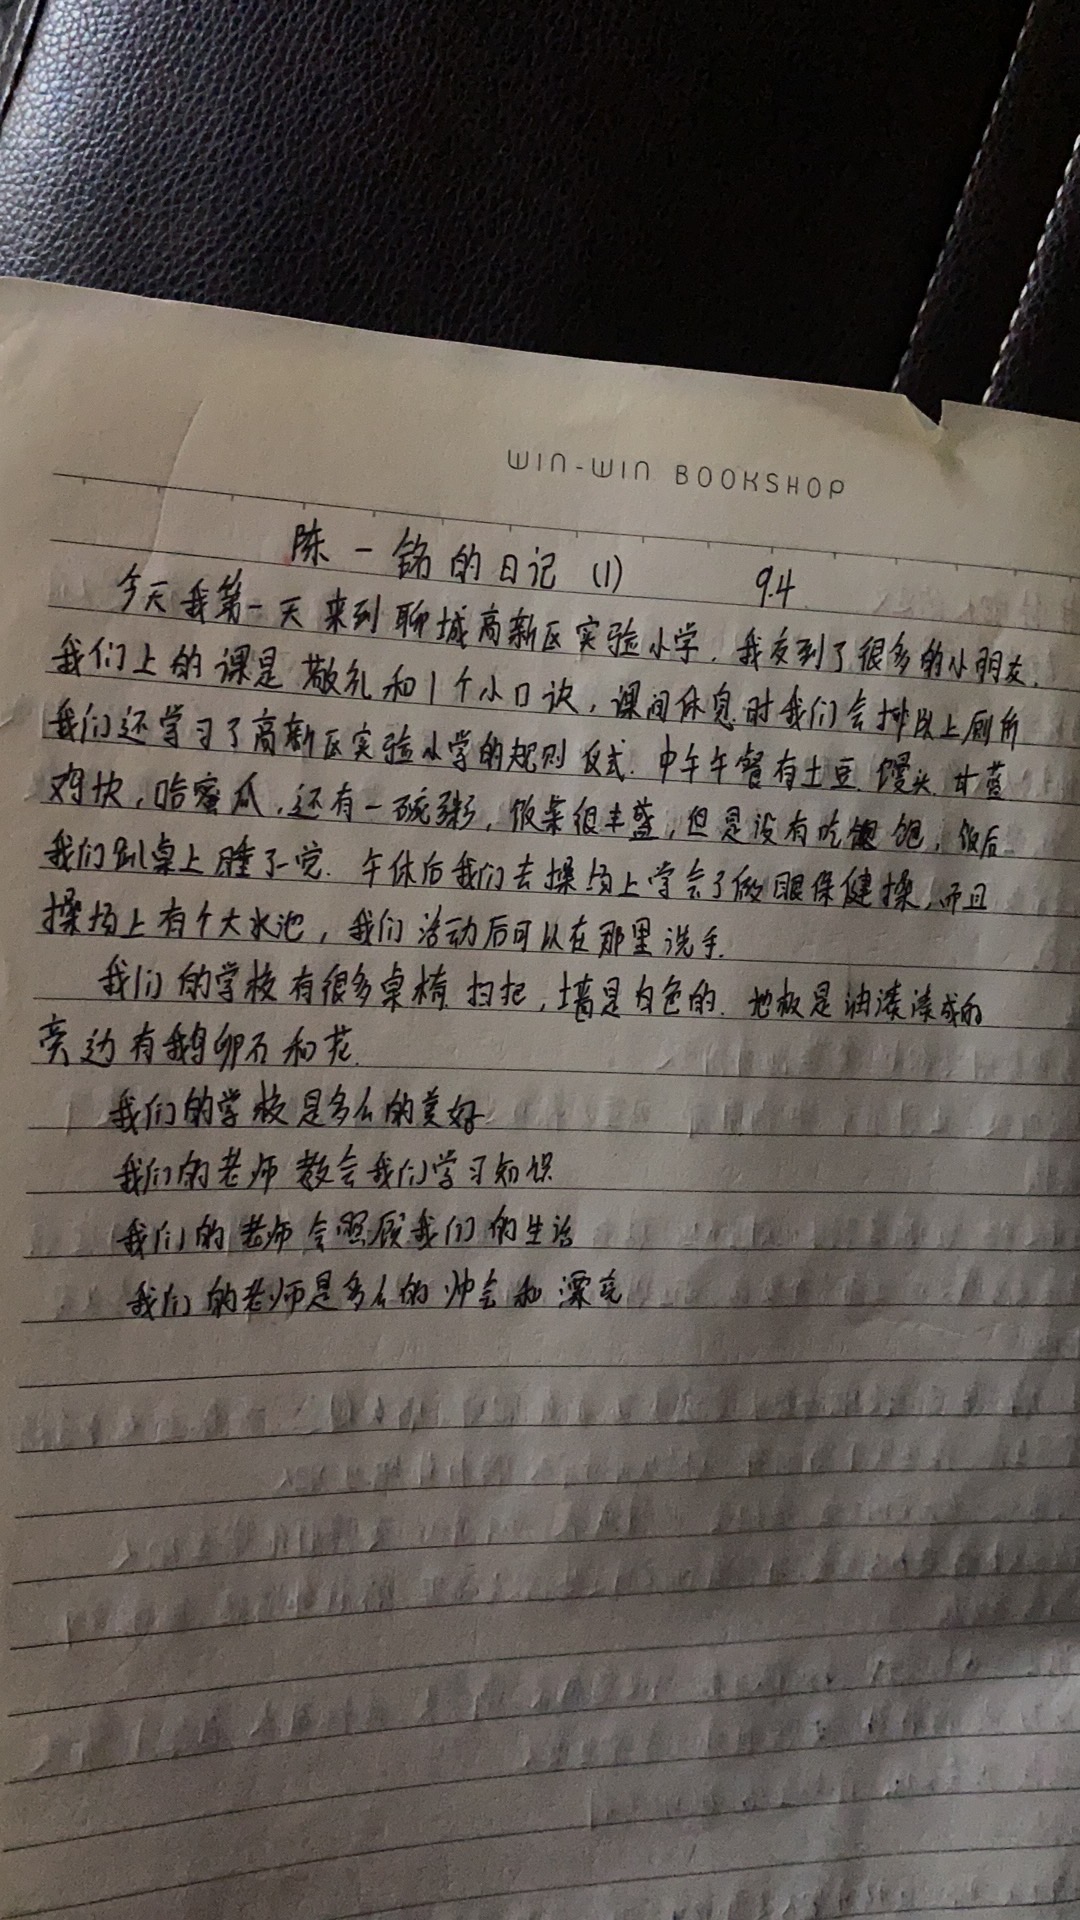 WIN-WIN BOOKSHOP
陈一铭的日记 (1) 9.4
今天我第一天来到聊城高新区实验小学.我交到了很多的小朋友.
我们上的课是敬礼和1个小口诀,课间休息时我们会排队上厕所
我们还学习了高新区实验小学的规则仪式.中午午餐有土豆.馒头.甘蓝
鸡块,哈蜜瓜,还有一碗粥,饭菜很丰盛,但是没有吃饱,饭后
我们趴桌上睡了一觉.午休后我们去操场上学会了做眼保健操,而且
操场上有个大水池,我们活动后可以在那里洗手.
我们的学校有很多桌椅.扫把,墙是白色的.地板是油漆漆成的
旁边有鹅卵石和花.
我们的学校是多么的美好
我们的老师教会我们学习知识
我们的老师会照顾我们的生活
我们的老师是多么的帅会和漂亮